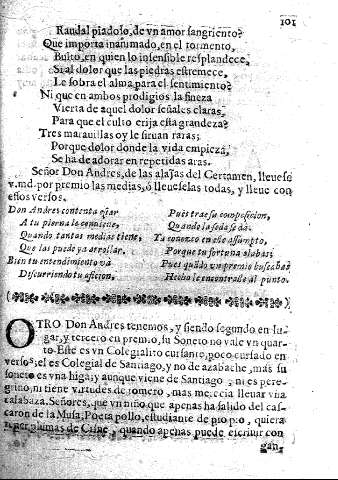 101
Raudal piadoso, de vn amor sangriento?
Que importa inanimado, en el tormento,
Bulto, en quien lo insensible resplandece,
Si al dolor que las piedras estremece,
Le sobra el alma para el sentimiento?
Ni que en ambos prodigios la fineza
Vierta de aquel dolor señales claras,
Para que el culto erija esta grandeza?
Tres marauillas oy le siruan raras;
Porque dolor donde la vida empieza,
Se ha de adorar en repetidas aras.
Señor Don Andres, de las alajas del Certamen, lleuese
v.md. por premio las medias, ò lleueselas todas, y lleue con
ellas versos.
Don Andres contenta
A tu pierna le conuiene,
Quando tantas medias tiene,
Que las puede ya arrollar.
Bien tu entendimiento và
Discurriendo tu aficion,
Pues trae su composicion,
Quando la seda se dà.
Ya conozco en este assumpto,
Porque tu fortuna alabas;
Pues quãdo vn premio buscabas
Hecho le encontraste al punto.
OTRO Don Andres tenemos, y siendo segundo en lu-
gar, y tercero en premio, su Soneto no vale vn quar-
to. Este es vn Colegialito cursante, poco cursado en
versos; el es Colegial de Santiago, y no de azabache, mas su
soneto es vna higa; y aunque viene de Santiago, ni es pere-
grino, ni tiene virtudes de romero, mas merecia lleuar vna
calabaza. Señores, que vn niño que apenas ha salido del cas-
caron de la Musa, Poeta pollo, estudiante de pio pio, quiera
tener plumas de Cisne, quando apenas puede escriuir con
gan-